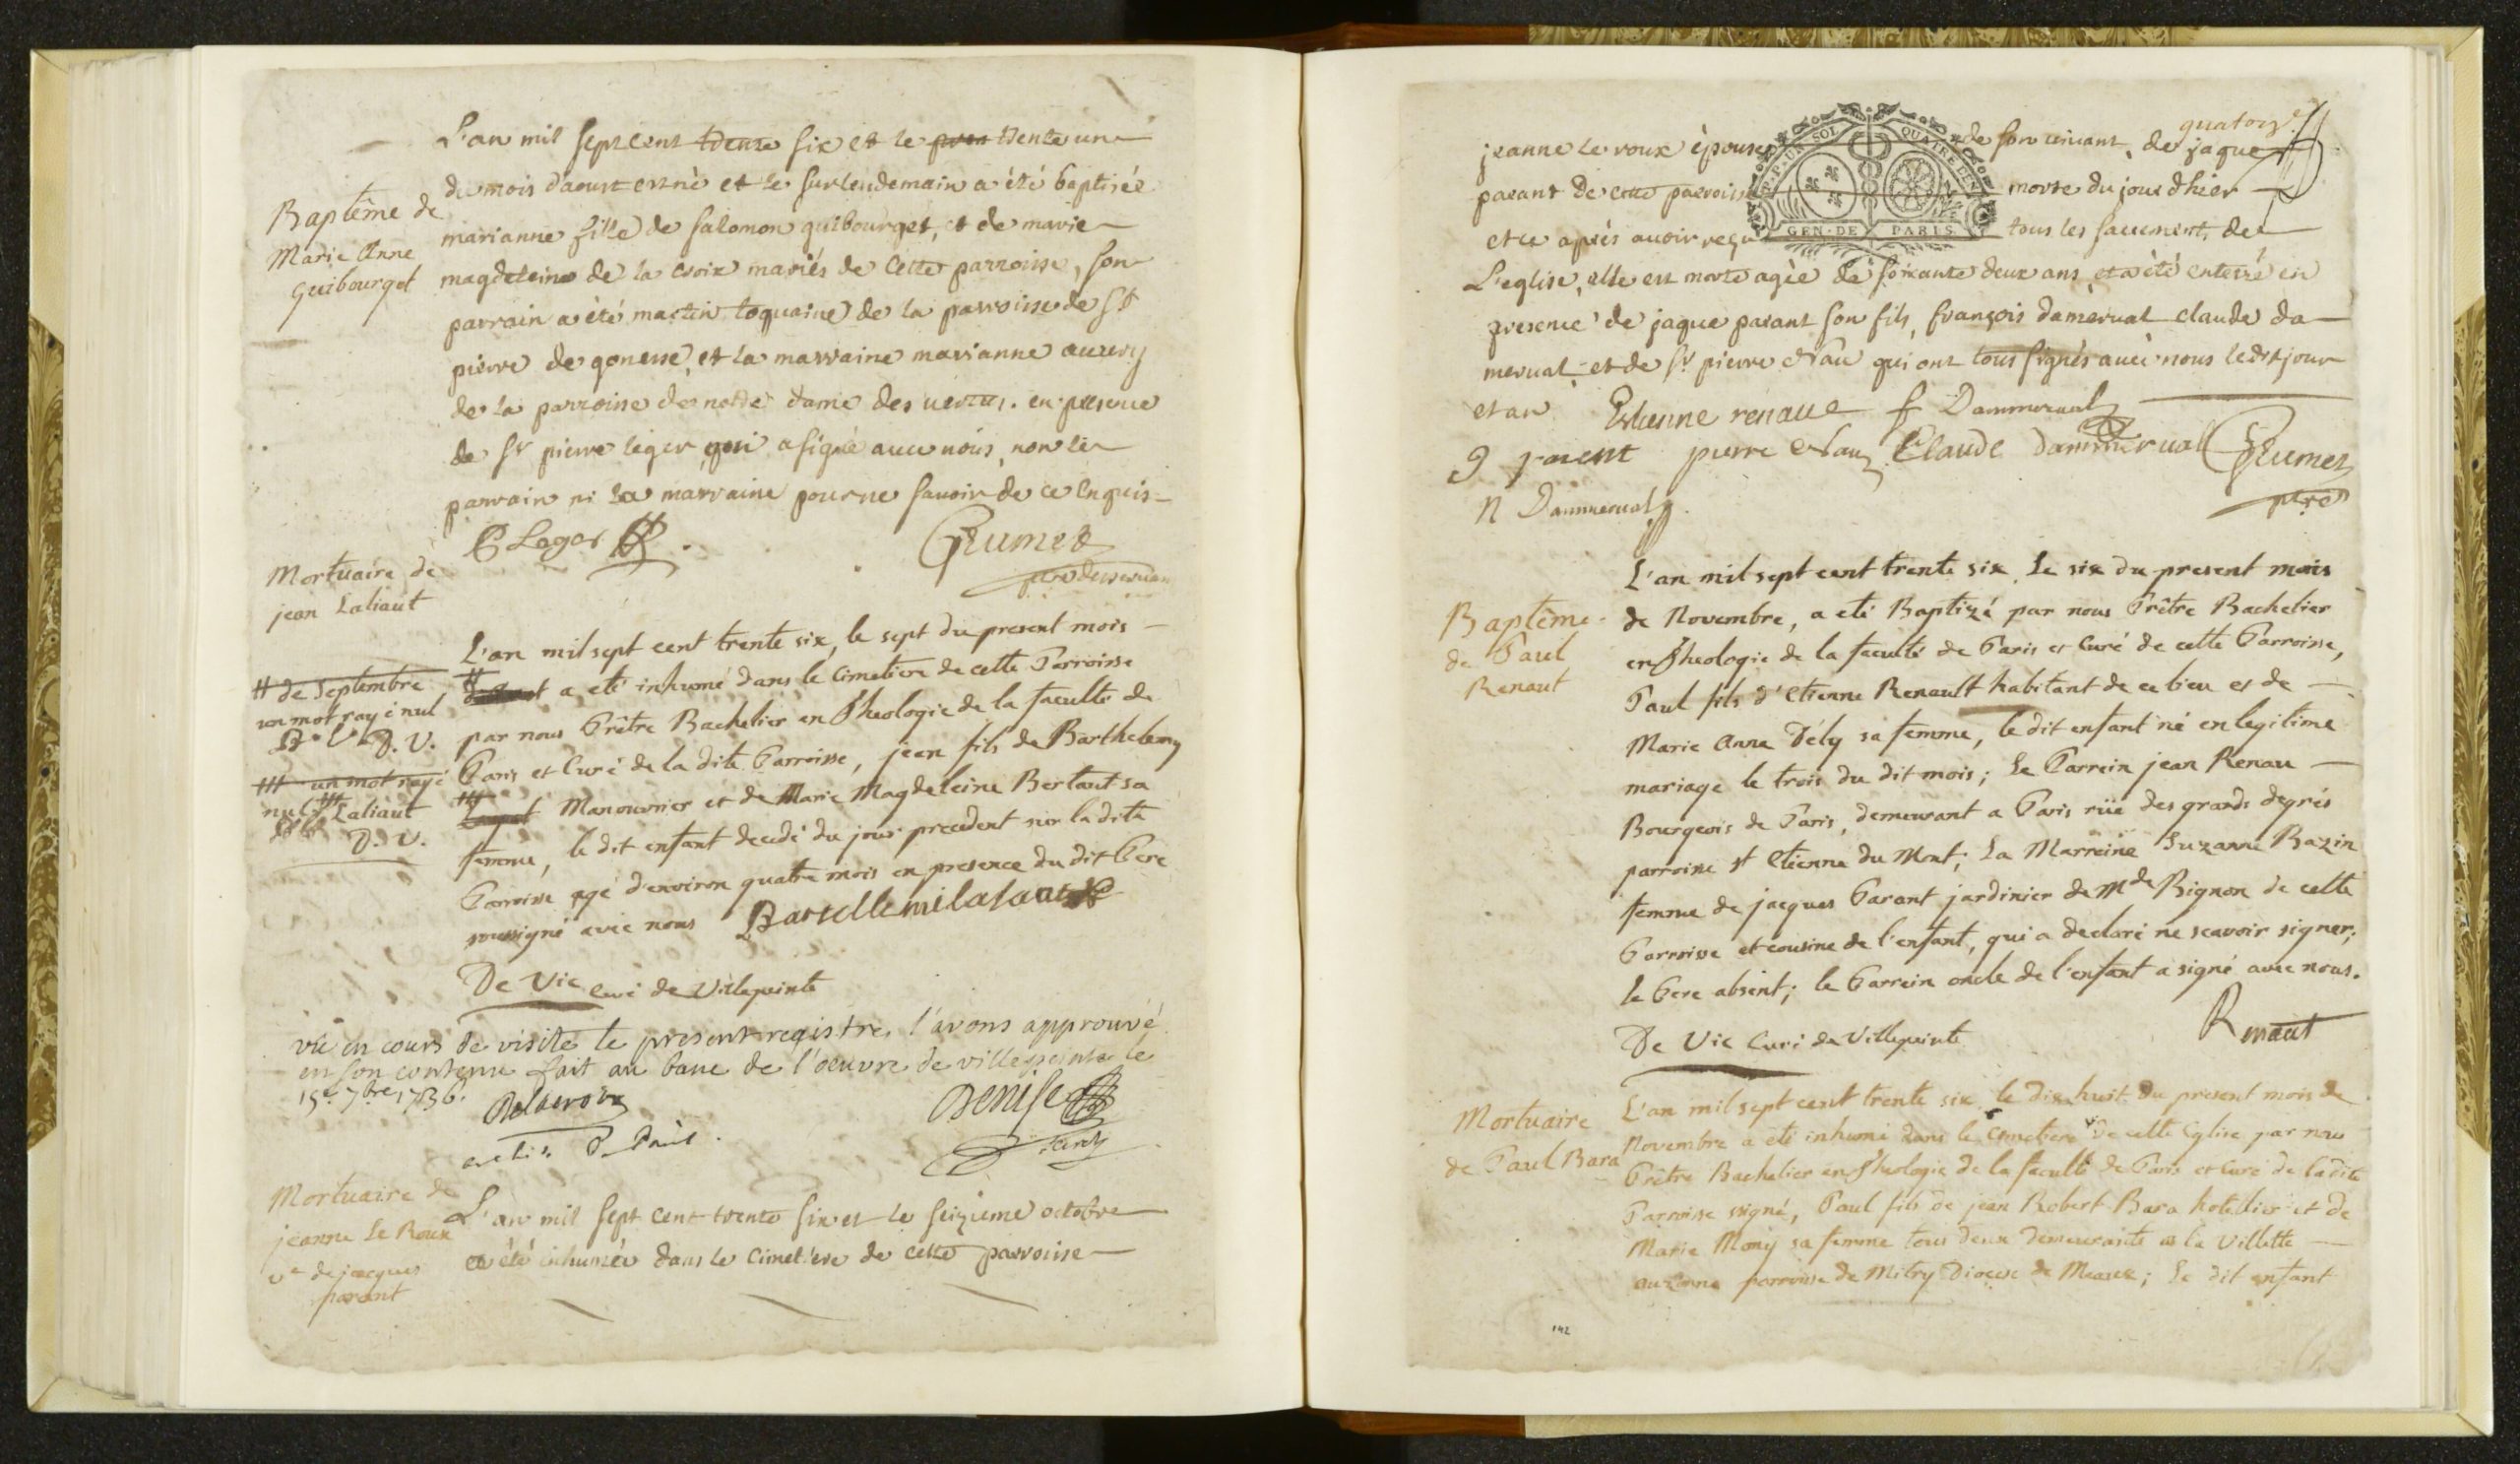 L'an mil sept cent trente six et le pren trente un
du mois d'aoust est né et le surlendemain a été baptisée
Baptême de
Marie Anne
Guibourget
marianne fille de salomon guibourget, et de marie
magdeleine de la croix mariés de cette parroisse, son
parrain a été martin toquaine de la parroisse de St
pierre de gonesse, et la marraine marianne auvry
de la parroisse de notre dame des vertus. en presence
de Sr pierre leger qui a signé avec nous, non le
parrain ni la marraine pour ne savoir de ce enquis
P Leger
Grumet
ptre desservan
Mortuaire de
jean Laliaut
L'an mil sept cent trente six, le sept du present mois
# de Septembre
un mot rayé nul
D. V.
# a eté inhumé dans le Cimetiere de cette Parroisse
par nous Prêtre Bachelier en Theologie de la faculté de
Paris et Curé de la dite Parroisse, jean fils de Barthelemy
### un mot rayé
nul ### Laliaut
D. V.
### Manouvrier et de Marie Magdeleine Bertaut sa
femme, le dit enfant decedé du jour precedent sur la dite
Parroisse agé d'environ quatre mois en presence du dit Pere
soussigné avec nous Bartellemi lalaut
De Vic curé de Villepeinte
vû en cours de visite le present registre, l'avons approuvé
en son contenu fait au banc de l'oeuvre de villepeinte le
15e. 7bre 1736.
Delacroix
archid. P. Paris.
Denise
Mortuaire de
jeanne Le Roux
ve de jacques
parant
L'an mil sept cent trente six et le seizieme octobre
a été inhumée dans le cimetiere de cette parroisse
quatorze
jeanne le roux épouse de son vivant, de jaque
GEN. DE PARIS
UN SOL QUATRE DEN.
parant de cette parroisse morte du jour d'hier
et ce aprés avoir reçu tous les sacrement de
L'eglise, elle est morte agée de soixante deux ans et a été enterré en
presence de jaque parant son fils, françois damerval claude da
merval, et de Sr pierre nau qui ont tous signés avec nous ledit jour
et an Estienne renaue f Dammerval
J parent pierre nau Claude dammerval Grumet
ptre
N Dammerval
L'an mil sept cent trente six, Le six du present mois
Baptême
de Paul
Renaut
de Novembre, a eté Baptizé par nous Prêtre Bachelier
en Theologie de la faculté de Paris et Curé de cette Parroisse,
Paul fils d'Etienne Renault habitant de ce lieu et de
Marie Anne Dély sa femme, le dit enfant né en legitime
mariage le trois du dit mois; Le Parrein jean Renau
Bourgeois de Paris, demeurant a Paris rüe des grands degrés
parroisse St Etienne du Mont; La Marreine Suzanne Bazin
femme de jacques Parant jardinier de Mde Bignon de cette
Parroisse et cousine de l'enfant, qui a declaré ne scavoir signer;
le Pere absent; le Parrein oncle de l'enfant a signé avec nous.
De Vic Curé de Villepeinte
Renaut
Mortuaire
de Paul Bara
L'an mil sept cent trente six, le dix huit du present mois de
Novembre a eté inhumé dans le Cimetiere de cette Eglise par nous
Prêtre Bachelier en Theologie de la faculté de Paris et Curé de ladite
Parroisse signé, Paul fils de jean Robert Bara hotellier et de
Marie Mony sa femme tous deux demeurants a la Villette
aux aunes parroisse de Mitry Diocese de Meaux; Le dit enfant
142